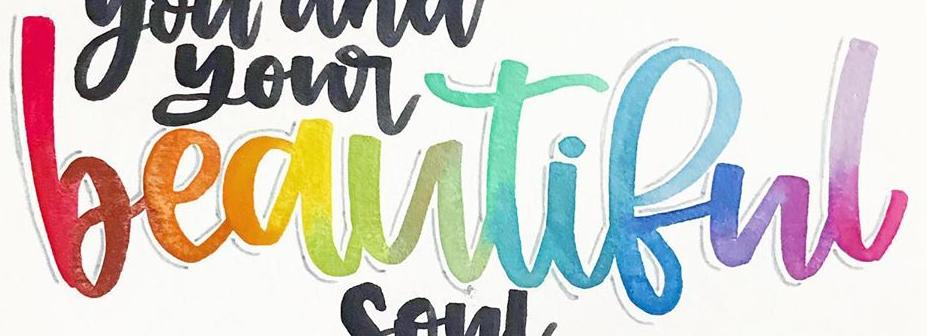 you and
your
beautiful
soul